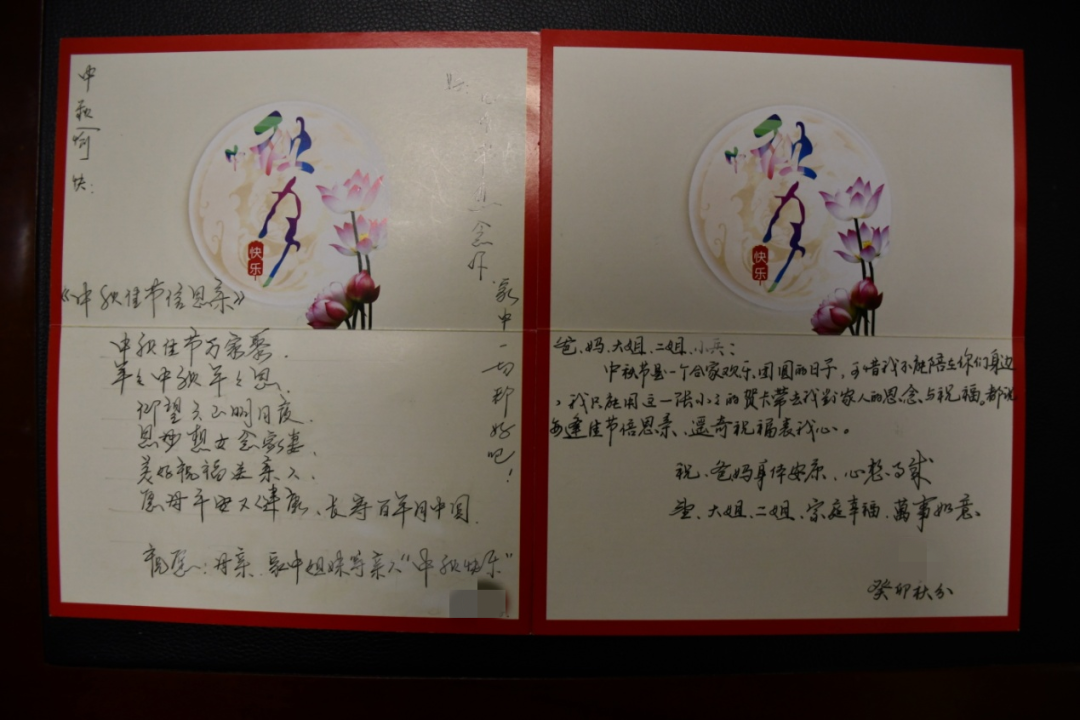 中秋
快乐
《中秋佳节倍思亲》
中秋佳节万家聚.
年年中秋年年思.
仰望 明月夜
思 想女念家妻.
美好祝福 亲人.
愿母平安又健康、长寿百年月中圆.
祝愿:母亲.家中姐妹等亲人“中秋快乐”
念你.
家中一切都好吧!
中秋
快乐
爸、妈、大姐、二姐、小兵:
中秋节是一个合家欢乐、团圆的日子,可惜我不能陪在你们身边
,我只能用这一张小小的贺卡带去我对家人的思念、与祝福。都说
每逢佳节倍思亲、遥寄祝福表我心。
祝、爸妈身体安康、心想事成
大姐、二姐、家庭幸福、萬事如意.
癸卯秋分